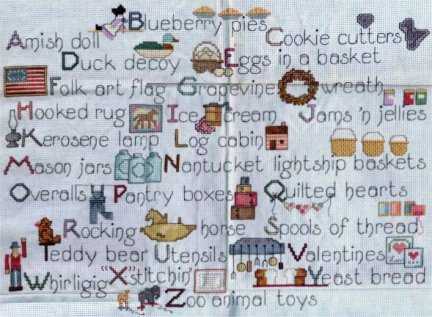 Blueberry pies
Amish doll Cookie cutters
Duck decoy Eggs in a basket
Folk art flag Grapevine wreath
Hooked rug Ice cream Jams 'n jellies
Kerosene lamp Log cabin
Mason jars Nantucket lightship baskets
Overalls Pantry boxes Quilted hearts
Rocking horse Spools of thread
Teddy bear Utensils Valentines
Whirligig "X"stitchin' Yeast bread
Zoo animal toys